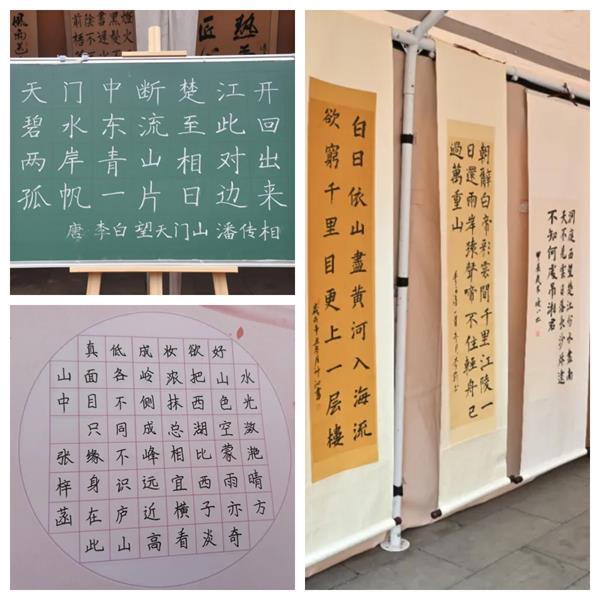 天门中断楚江开
碧水东流至此回
两岸青山相对出
孤帆一片日边来
唐 李白 望天门山 潘传相
水光潋滟晴方
好山色空蒙雨亦奇
欲把西湖比西子淡
妆浓抹总相宜横看
成岭侧成峰远近高
低各不同不识庐山
真面目只缘身在此
山中 张梓菡
白日依山盡黄河入海流
欲窮千里目更上一层樓
朝辭白帝彩雲間千里江陵一
日還兩岸猿聲啼不住輕舟已
過萬重山
洞庭西望楚江分水盡南
天不見雲日落長沙秋色遠
不知何處吊湘君